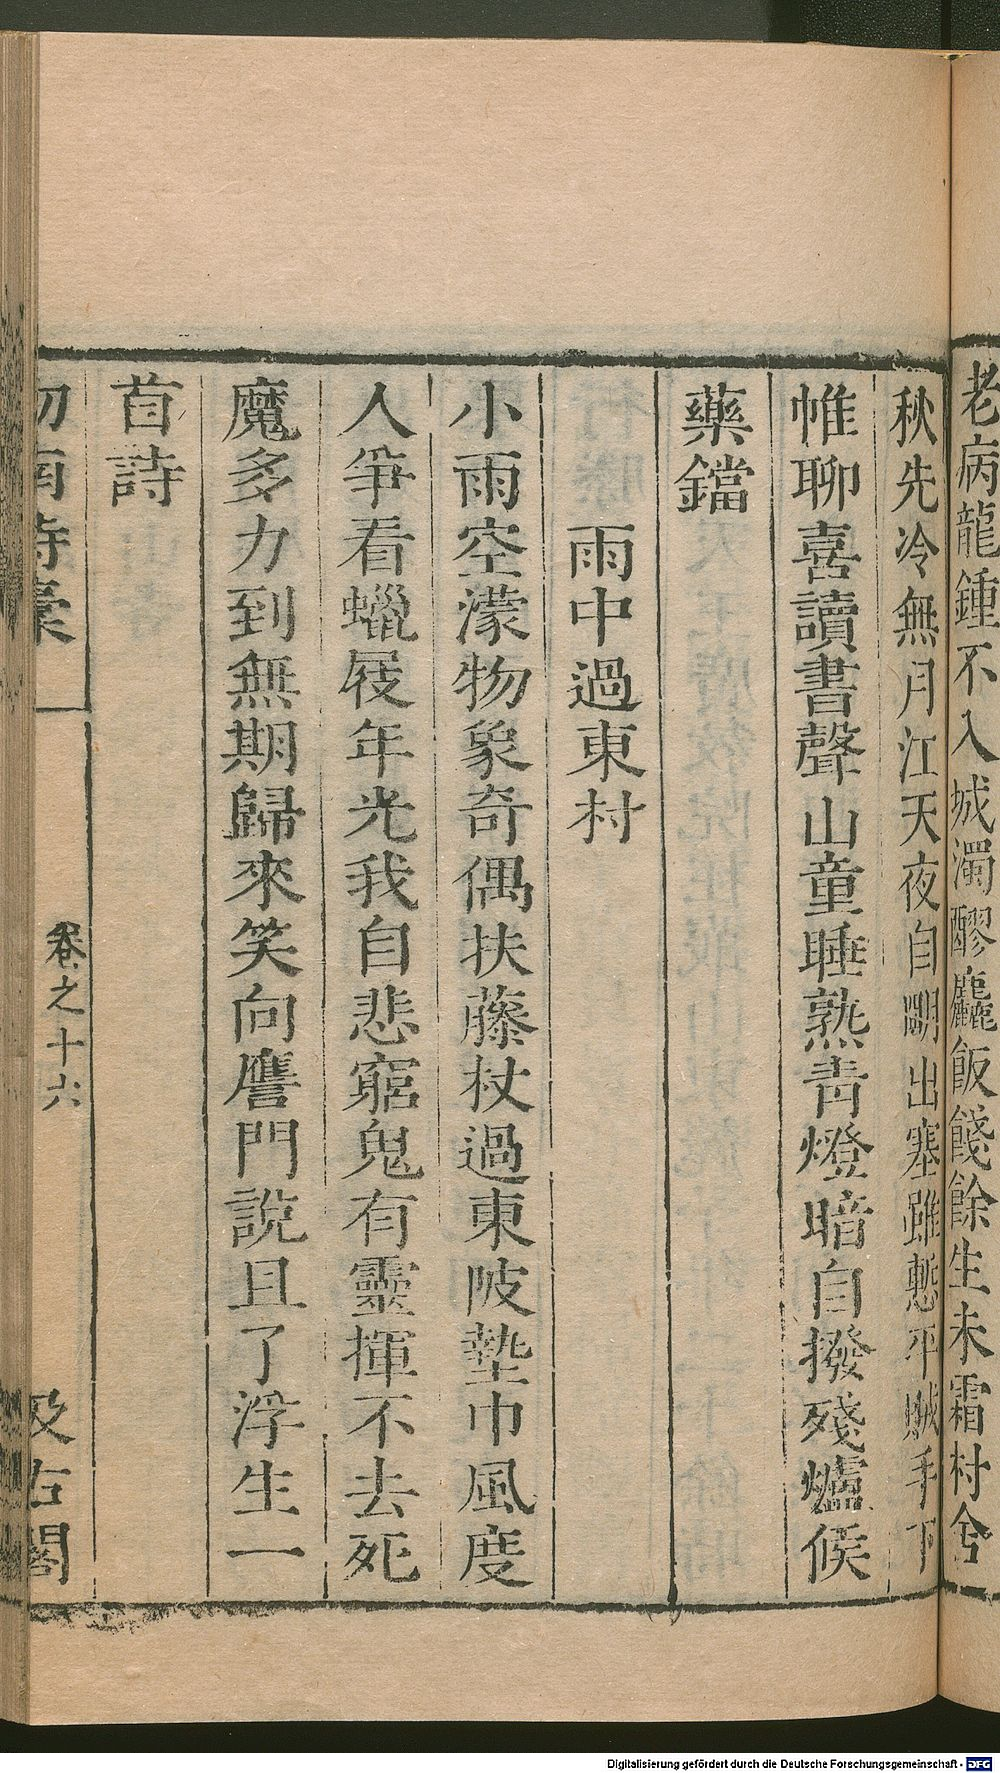 老病龍鍾不入城濁醪麤飯餞餘生未霜村舍
秋先冷無月江天夜自明出塞雖慙平賊手下
帷聊喜讀書聲山童睡熟青燈暗自撥殘爐候
藥鐺
雨中過東村
小雨空濛物象奇偶扶藤杖過東陂墊巾風度
人爭看蠟屐年光我自悲窮鬼有靈揮不去死
魔多力到無期歸來笑向鴈門說且了浮生一
首詩
劒南詩稾
卷之十六
汲古閣
Digitalisierung gefördert durch die Deutsche Forschungsgemeinschaft - DFG